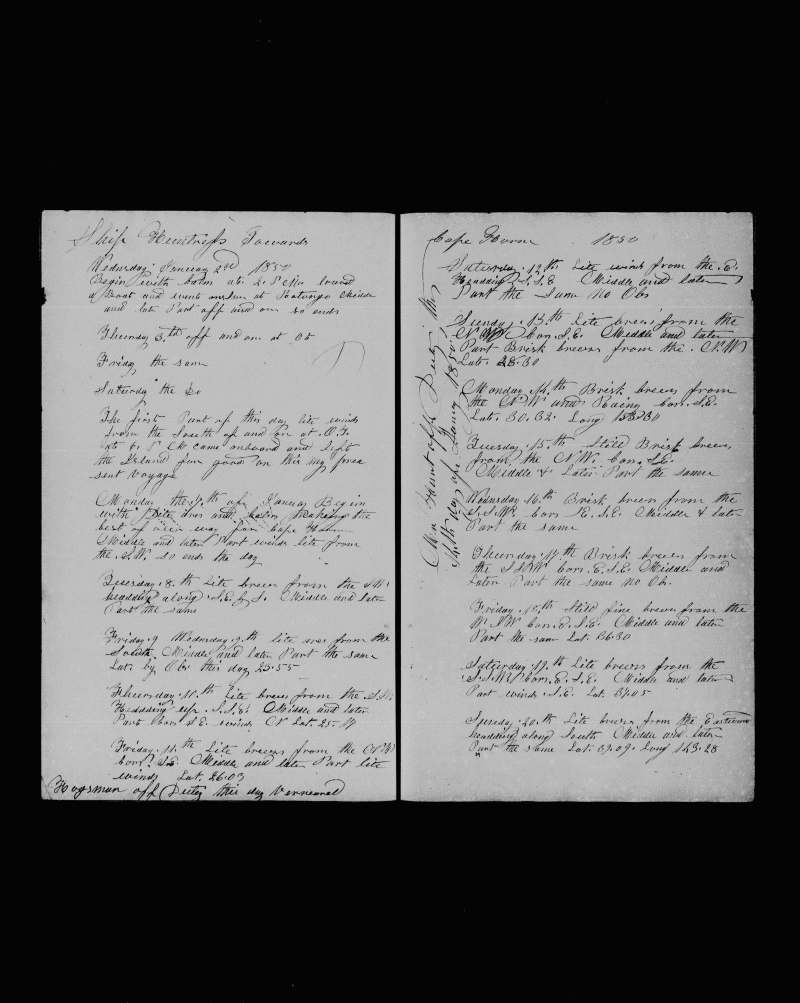 Ship Huntress Towards
Wednsday January 2nd 1850
Begin with calm at 2 P M lowerd
a Boat and went onshore at Middle
and late Part off and on so ends
Thursday 3th off and on at Ob
Friday the same
Saturday the Do
The first Part of this day lite winds
from the South of and On at
at 6 P M came onboard and left
the Island for good on this my prea
sent voyage
Monday the 7th of January Begin
with lite airs and calm making the
best of our way for Cape Horn
Middle and later Part winds lite from
the S.W. so ends the day
Tuesday 8th Lite breses from the SW
headding along S.E. by S. Middle and later
Part the same
Friday 9 Wednsday 9th lite from the
South Middle and later Part the same
Lat. by Obs this day 23.55
Thursday 10th Lite breses from the S.W.
Headding up S.S.E. Middle and later
Part Cors S.E. winds N Lat. 25.
Friday 11th Lite breses from the N.W
Cors S.E. Middle and late Part lite
winds Lat. 26.03
off Duty this day Vennereal
Cape Horn 1850
Saturday 12th Lite winds from the E.
Headding S.S.E Middle and later
Part the Same No Obs
Sunday 13th Lite breses from the
N.W Cors S.E. Middle and later
Part Brisk breses from the N.W
Lat. 28.30
Monday 14th Brisk breses from
the N.W. and Cors. S.E.
Lat. 30.32. Long
Tuesday 15th Still Brisk breses
from the N.W. Cors S.E.
Middle & Later Part the same
Wednsday 16th Brisk breses from the
S.S.W. Cors E.S.E. Middle & late
Part the same
Thursday 17th Brisk breses from
the S.S.W Cors. E.S.E. Middle and
Later Part the same no Ob.
Friday 18th Still fine breses from the
W.S.W Cors. E.S.E. Middle and later
Part the same Lat. 36.30
Saturday 19th Lite breses from the
S.S.W. Cors. E.S.E. Middle and later
Part winds S.E. Lat. 37.05
Sunday 20th Lite breses from the Eastward
headding along South Middle and later
Part the same Lat. 37.09. Long 143.28
Hunt off Duty this
day of January 1850